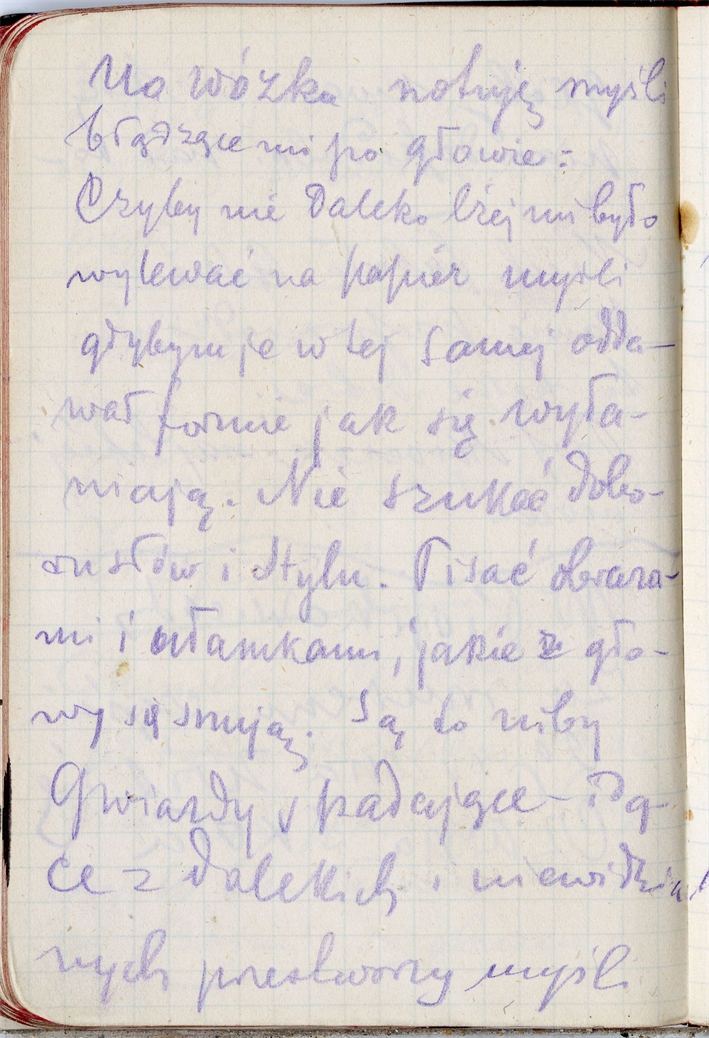 Na wózku notuję myśli
błądzące mi po głowie:
Czyby nie daleko lżej mi było
wylewać na papier myśli
gdybym je w tej samej odda-
wał formie jak się wyła-
niają. Nie szukać dobo-
ru słów i stylu. Pisać obraza-
mi i ułamkami, jakie z gło-
wy się snują. Są to niby
Gwiazdy spadające – idą-
ce z dalekich i niewidzial
nych przestworzy myśli